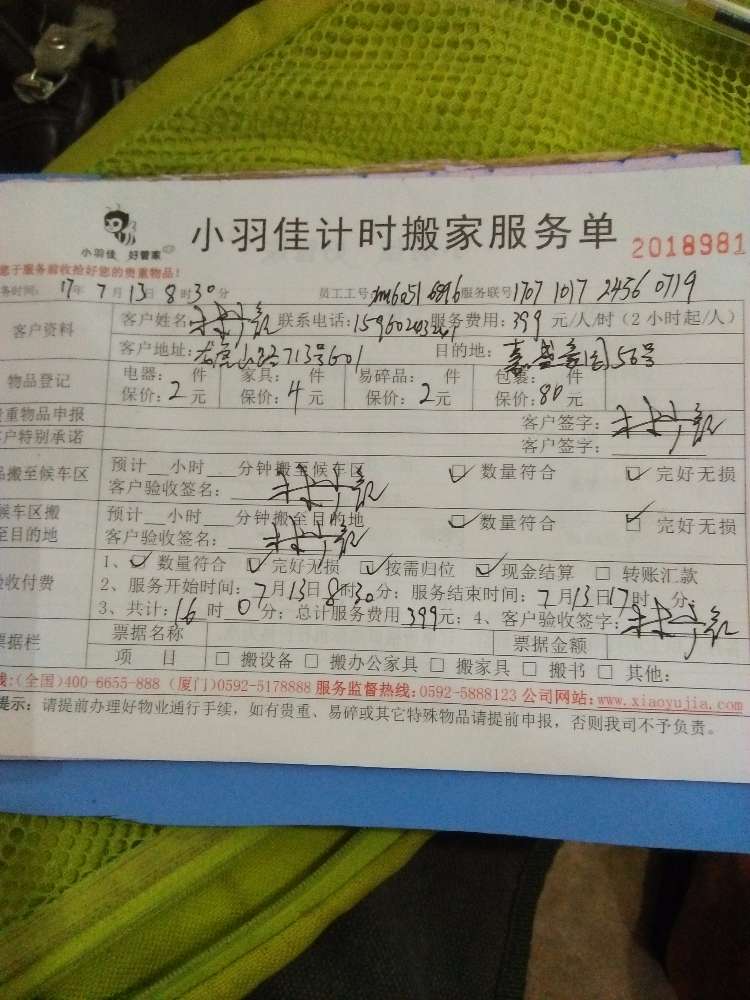 小羽佳 好管家
小羽佳计时搬家服务单 2018981
您于服务前收拾好您的贵重物品!
务时间: 17年 7月13日8时30分 员工工号: 服务联号1707 1017 2456 0719
客户资料 客户姓名: 联系电话: 服务费用:399 元/人/时(2小时起/人)
客户地址: 713号601 目的地: 56号
物品登记 电器: 件 家具: 件 易碎品: 件 包裹: 件
保价:2元 保价:4元 保价:2元 保价:80元
重物品申报 客户签字:
户特别承诺 客户签字:
品搬至候车区 预计__小时__分钟搬至候车区 数量符合 完好无损
客户验收签名:
候车区搬至目的地 预计__小时__分钟搬至目的地 数量符合 完好无损
客户验收签名:
验收付费 1、数量符合 完好无损 按需归位 现金结算 转账汇款
2、服务开始时间:7月13日8时30分;服务结束时间:7月13日17时 分;
3、共计:16时0分;总计服务费用399元;4、客户验收签字:
票据栏 票据名称 票据金额
项 目 搬设备 搬办公家具 搬家具 搬书 其他:
线:(全国)400-6655-888 (厦门)0592-5178888 服务监督热线:0592-5888123 公司网站:www.xiaoyujia.com
提示:请提前办理好物业通行手续,如有贵重、易碎或其它特殊物品请提前申报,否则我司不予负责。